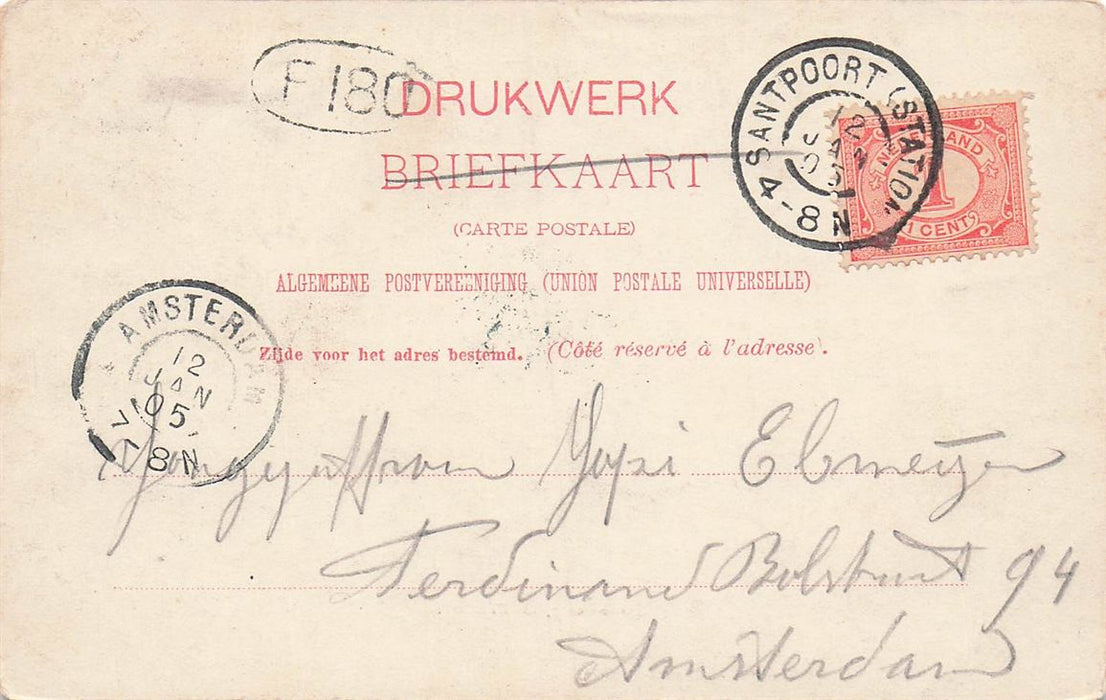 F 180
DRUKWERK
BRIEFKAART
(CARTE POSTALE)
ALGEMEENE POSTVEREENIGING (UNION POSTALE UNIVERSELLE)
Zijde voor het adres bestemd. (Côté réservé à l'adresse).
SANTPOORT (STATION)
12
JAN
05
4-8N
NEDERLAND
1
1 CENT
AMSTERDAM
12
JAN
05
7-8N
Elmeijer
Ferdinand Bolstraat 94
Amsterdam